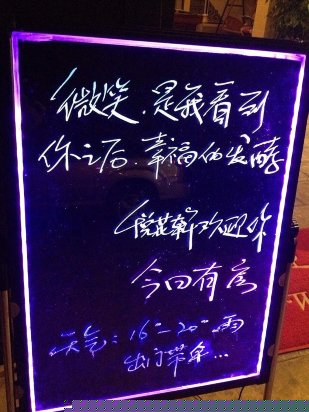 微笑.是我看到
你之后.幸福的发酵
轩欢迎你
今日有房
天气:16°-20°雨
出门带伞...